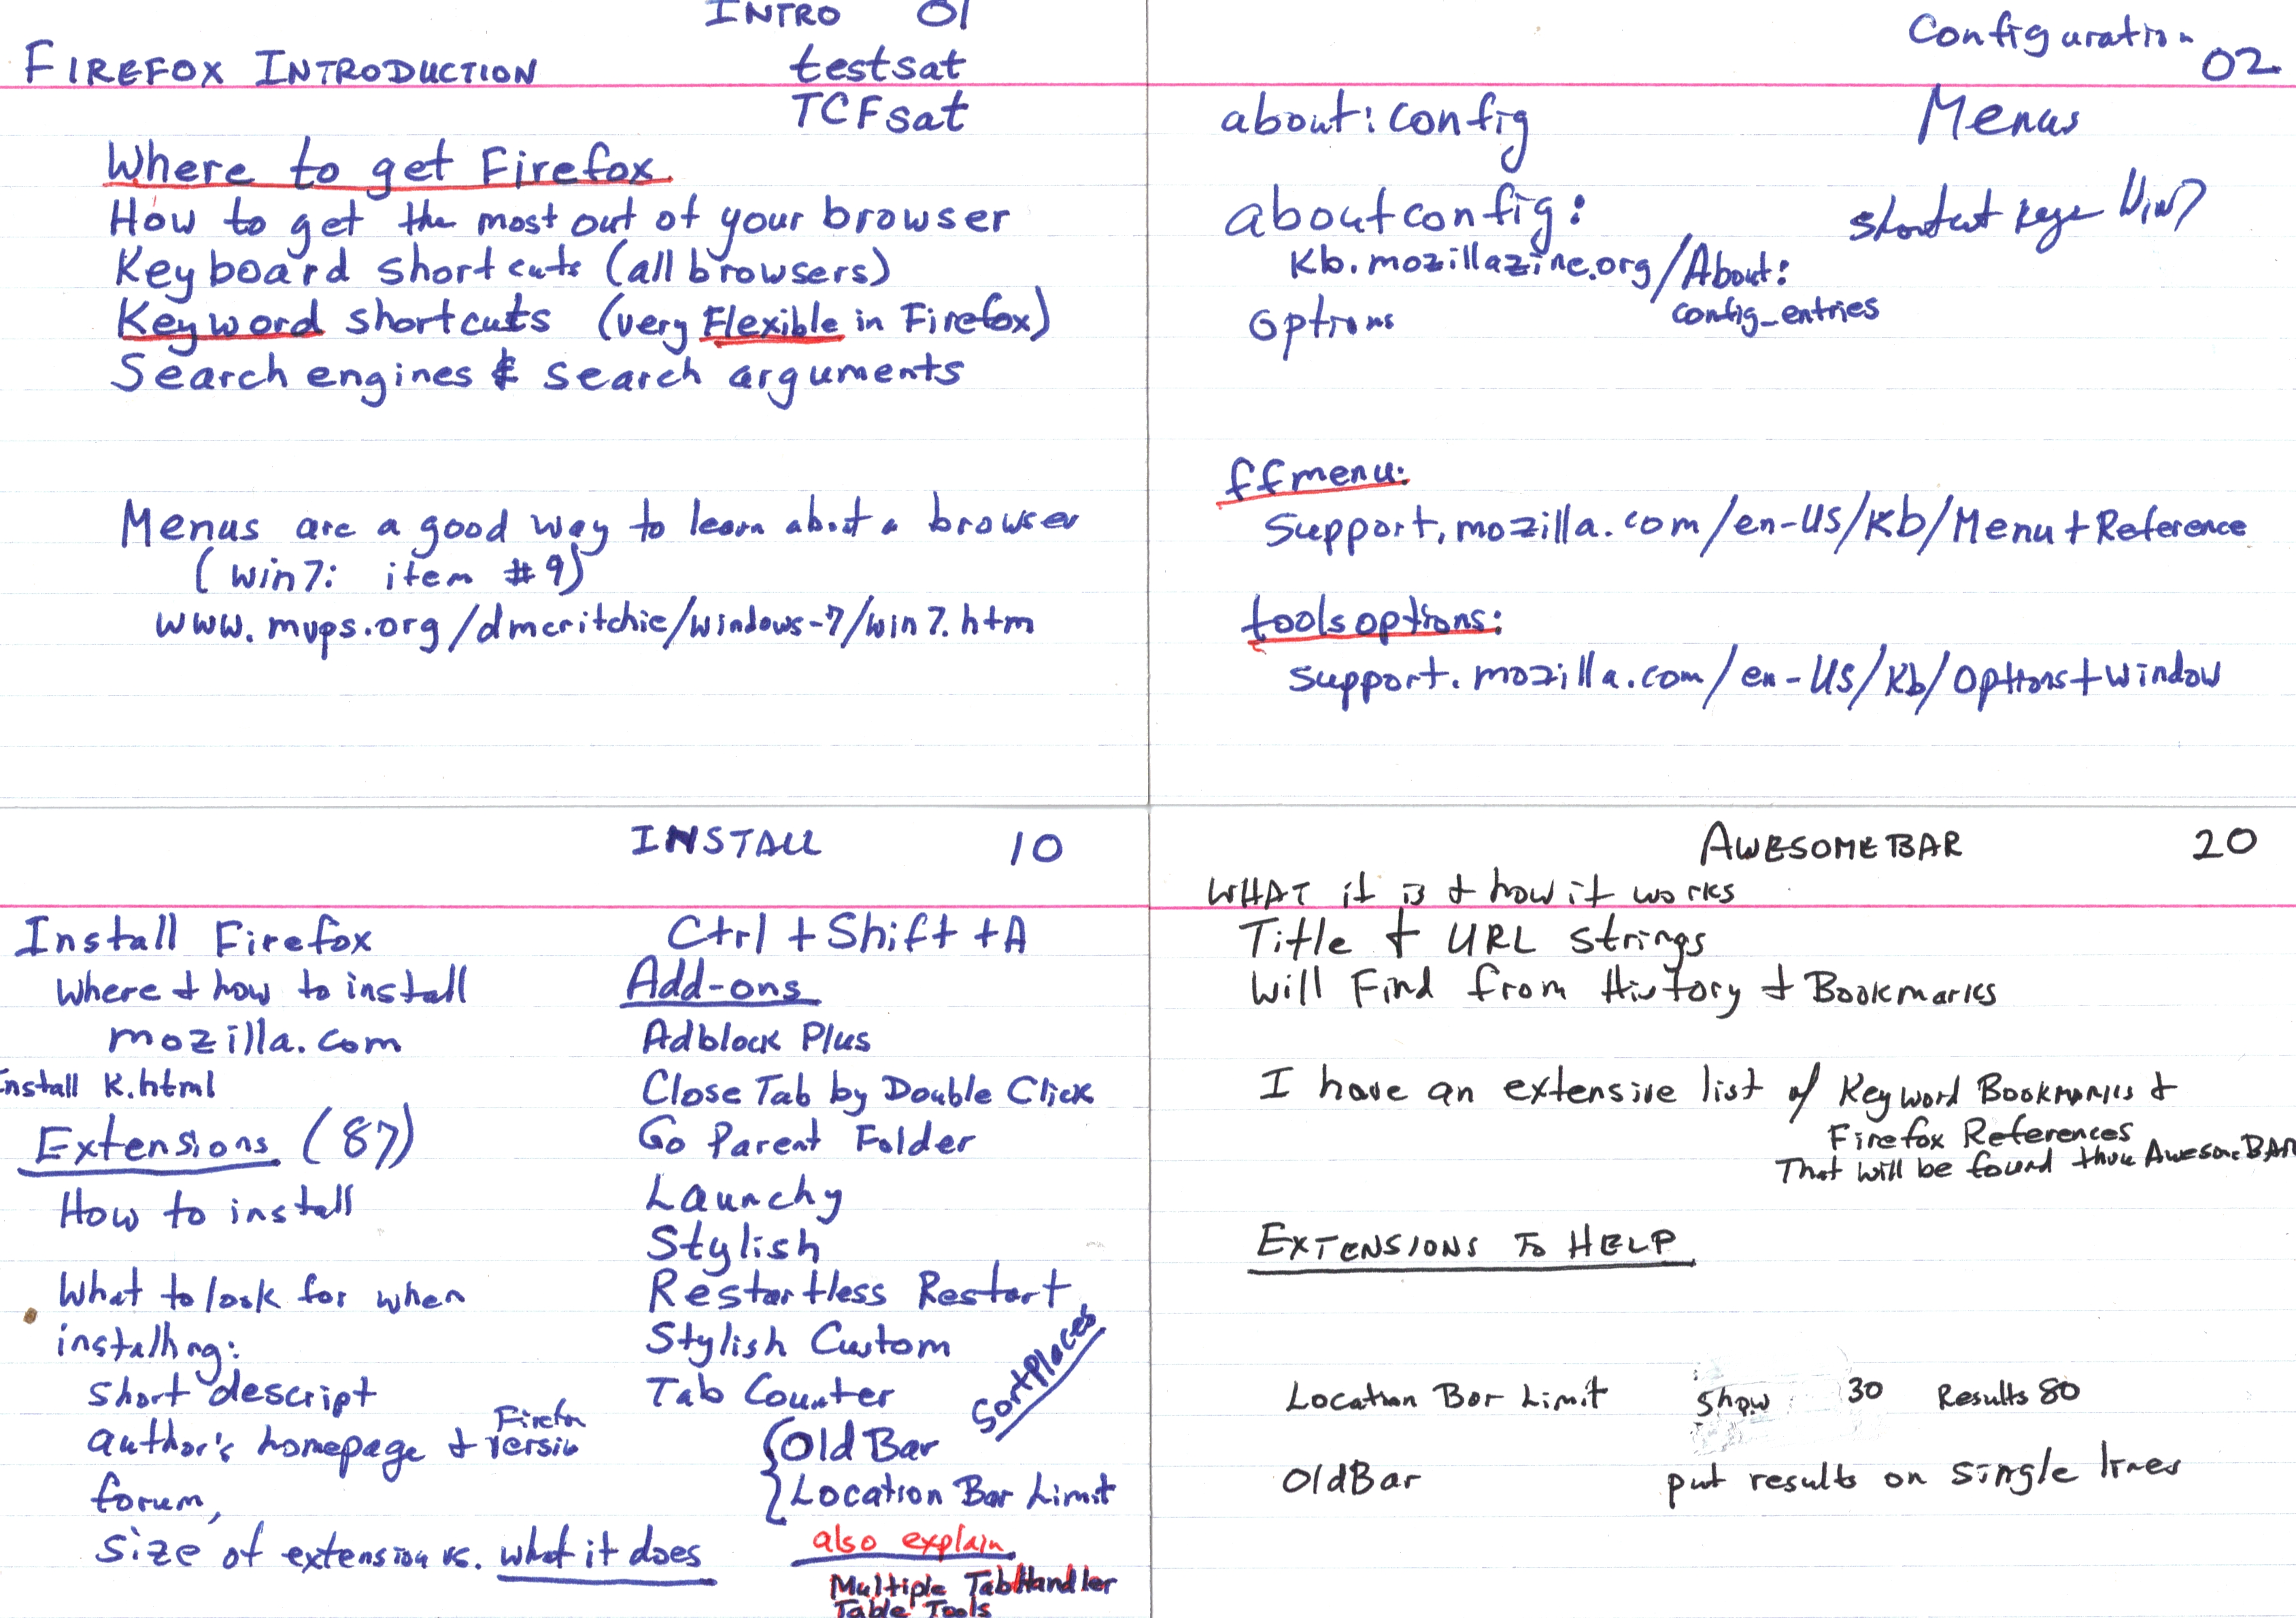 INTRO 01
FIREFOX INTRODUCTION testsat
TCFsat
Where to get Firefox
How to get the most out of your browser
Keyboard shortcuts (all browsers)
Keyword shortcuts (very Flexible in Firefox)
Search engines & search arguments
Menus are a good way to learn about a browser
(win7: item #9)
www.mvps.org/dmcritchie/windows-7/win7.htm
Configuration 02
about:config Menus
aboutconfig: shortcut keys Win7
Kb.mozillazine.org/About:
config_entries
Options
ffmenu:
support.mozilla.com/en-US/kb/Menu+Reference
toolsoptions:
support.mozilla.com/en-US/kb/Options+window
INSTALL 10
Install Firefox
Where & how to install
mozilla.com
Install K.html
Extensions (87)
How to install
What to look for when
installing:
short descript
author's homepage & Firefox versio
forum,
size of extension vs. what it does
Ctrl + Shift + A
Add-ons
Adblock Plus
Close Tab by Double Click
Go Parent Folder
Launchy
Stylish
Restartless Restart
Stylish Custom
Tab Counter
SortPlaces
{Old Bar
{Location Bar Limit
also explain
Multiple TabHandler
Table Tools
AWESOMEBAR 20
WHAT it is & how it works
Title & URL strings
Will Find from History & Bookmarks
I have an extensive list of Keyword Bookmarks &
Firefox References
That will be found thru AwesomeBAR
EXTENSIONS TO HELP
Location Bar Limit show 30 Results 80
OldBar put results on single lines